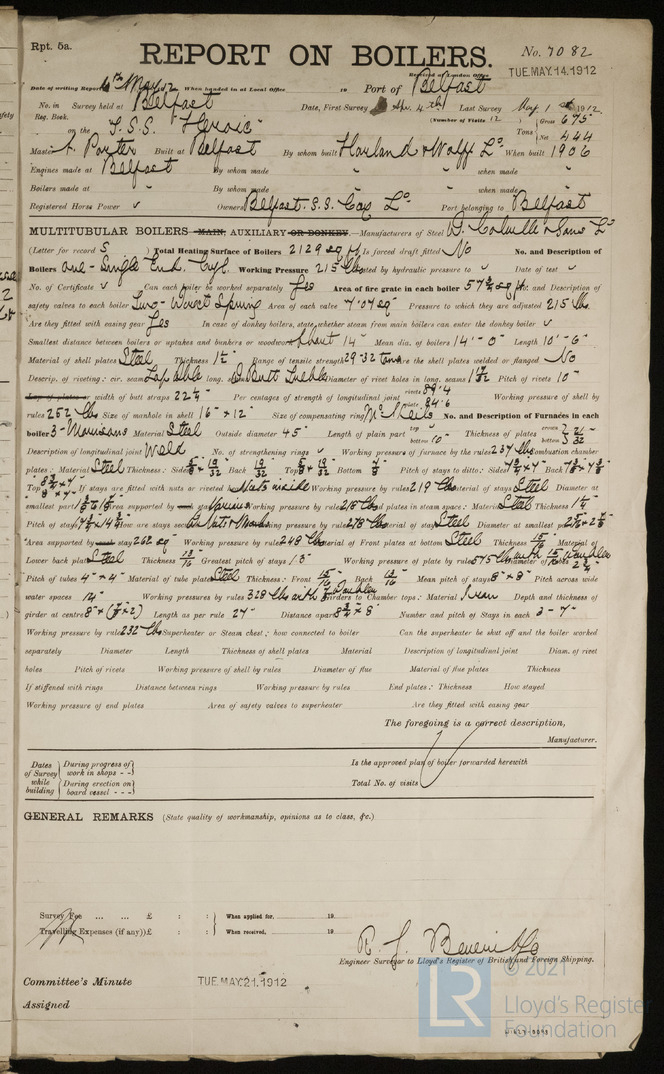 Rpt. 5a.
REPORT ON BOILERS.
No. 7082
Received at London Office TUE. MAY. 14. 1912
Date of writing Report 6th May 12 When handed in at Local Office 19 Port of Belfast
No. in Survey held at Belfast Date, First Survey Apr. 4th Last Survey May 1 1912
Reg. Book. (Number of Visits 12)
on the S.S.S. "Heroic" Tons Gross 675 Net 444
Master A. Porter Built at Belfast By whom built Harland & Wolff Ld. When built 1906
Engines made at Belfast By whom made " " when made "
Boilers made at " By whom made " " when made "
Registered Horse Power ✓ Owners Belfast S.S. Coy Ld. Port belonging to Belfast
MULTITUBULAR BOILERS MAIN, AUXILIARY OR DONKEY.—Manufacturers of Steel D. Colville & Sons Ld
(Letter for record S) Total Heating Surface of Boilers 2129 sq ft Is forced draft fitted No No. and Description of
Boilers one - Single End. Cyl. Working Pressure 215 lbs Tested by hydraulic pressure to ✓ Date of test ✓
No. of Certificate ✓ Can each boiler be worked separately Yes Area of fire grate in each boiler 57 3/4 sq ft No. and Description of
safety valves to each boiler Two - Direct Spring Area of each valve 7.07 sq" Pressure to which they are adjusted 215 lbs.
Are they fitted with easing gear Yes In case of donkey boilers, state whether steam from main boilers can enter the donkey boiler ✓
Smallest distance between boilers or uptakes and bunkers or woodwork About 14" Mean dia. of boilers 14'-0" Length 10'-6"
Material of shell plates Steel Thickness Range of tensile strength 29-32 tons Are the shell plates welded or flanged No
Descrip. of riveting: cir. seams Lap Dble long. seams D Butt Treble Diameter of rivet holes in long. seams Pitch of rivets 10"
Lap of plates or width of butt straps 22 1/4" Per centages of strength of longitudinal joint rivets 89.4 plate 84.6 Working pressure of shell by
rules 252 lbs Size of manhole in shell 16" × 12" Size of compensating ring McNeils No. and Description of Furnaces in each
boiler 3 - Morisons Material Steel Outside diameter 45" Length of plain part top bottom 10" Thickness of plates crown bottom
Description of longitudinal joint Weld No. of strengthening rings ✓ Working pressure of furnace by the rules 237 lbs Combustion chamber
plates: Material Steel Thickness: Sides Back Top Bottom Pitch of stays to ditto: Sides Back
Top If stays are fitted with nuts or riveted heads Nuts inside Working pressure by rules 219 lbs Material of stays Steel Diameter at
smallest part Area supported by each stay Various Working pressure by rules 218 lbs End plates in steam space: Material Steel Thickness
Pitch of stays How are stays secured Working pressure by rules 278 lbs Material of stays Steel Diameter at smallest part
Area supported by each stay 262 sq" Working pressure by rules 248 lbs Material of Front plates at bottom Steel Thickness 15/16" Material of
Lower back plate Steel Thickness 13/16" Greatest pitch of stays 13" Working pressure of plate by rules Diameter of tubes
Pitch of tubes 4" × 4" Material of tube plates Steel Thickness: Front 15/16" Back 13/16" Mean pitch of stays 8" × 8" Pitch across wide
water spaces 14" Working pressures by rules 328 lbs Girders to Chamber tops: Material Iron Depth and thickness of
girder at centre 8" × (7/8" × 2) Length as per rule 27" Distance apart 8 3/4" × 8" Number and pitch of Stays in each 3 - 7"
Working pressure by rules 232 lbs Superheater or Steam chest; how connected to boiler Can the superheater be shut off and the boiler worked
separately Diameter Length Thickness of shell plates Material Description of longitudinal joint Diam. of rivet
holes Pitch of rivets Working pressure of shell by rules Diameter of flue Material of flue plates Thickness
If stiffened with rings Distance between rings Working pressure by rules End plates: Thickness How stayed
Working pressure of end plates Area of safety valves to superheater Are they fitted with easing gear
The foregoing is a correct description,
Manufacturer.
Dates of Survey while building During progress of work in shops - - Is the approved plan of boiler forwarded herewith
During erection on board vessel - - - Total No. of visits
GENERAL REMARKS (State quality of workmanship, opinions as to class, &c.)
Survey Fee ... ... £ : : When applied for, 19
Travelling Expenses (if any) £ : : When received, 19
Engineer Surveyor to Lloyd's Register of British and Foreign Shipping.
Committee's Minute TUE. MAY. 21. 1912
Assigned
LR
© 2021
Lloyd's Register
Foundation